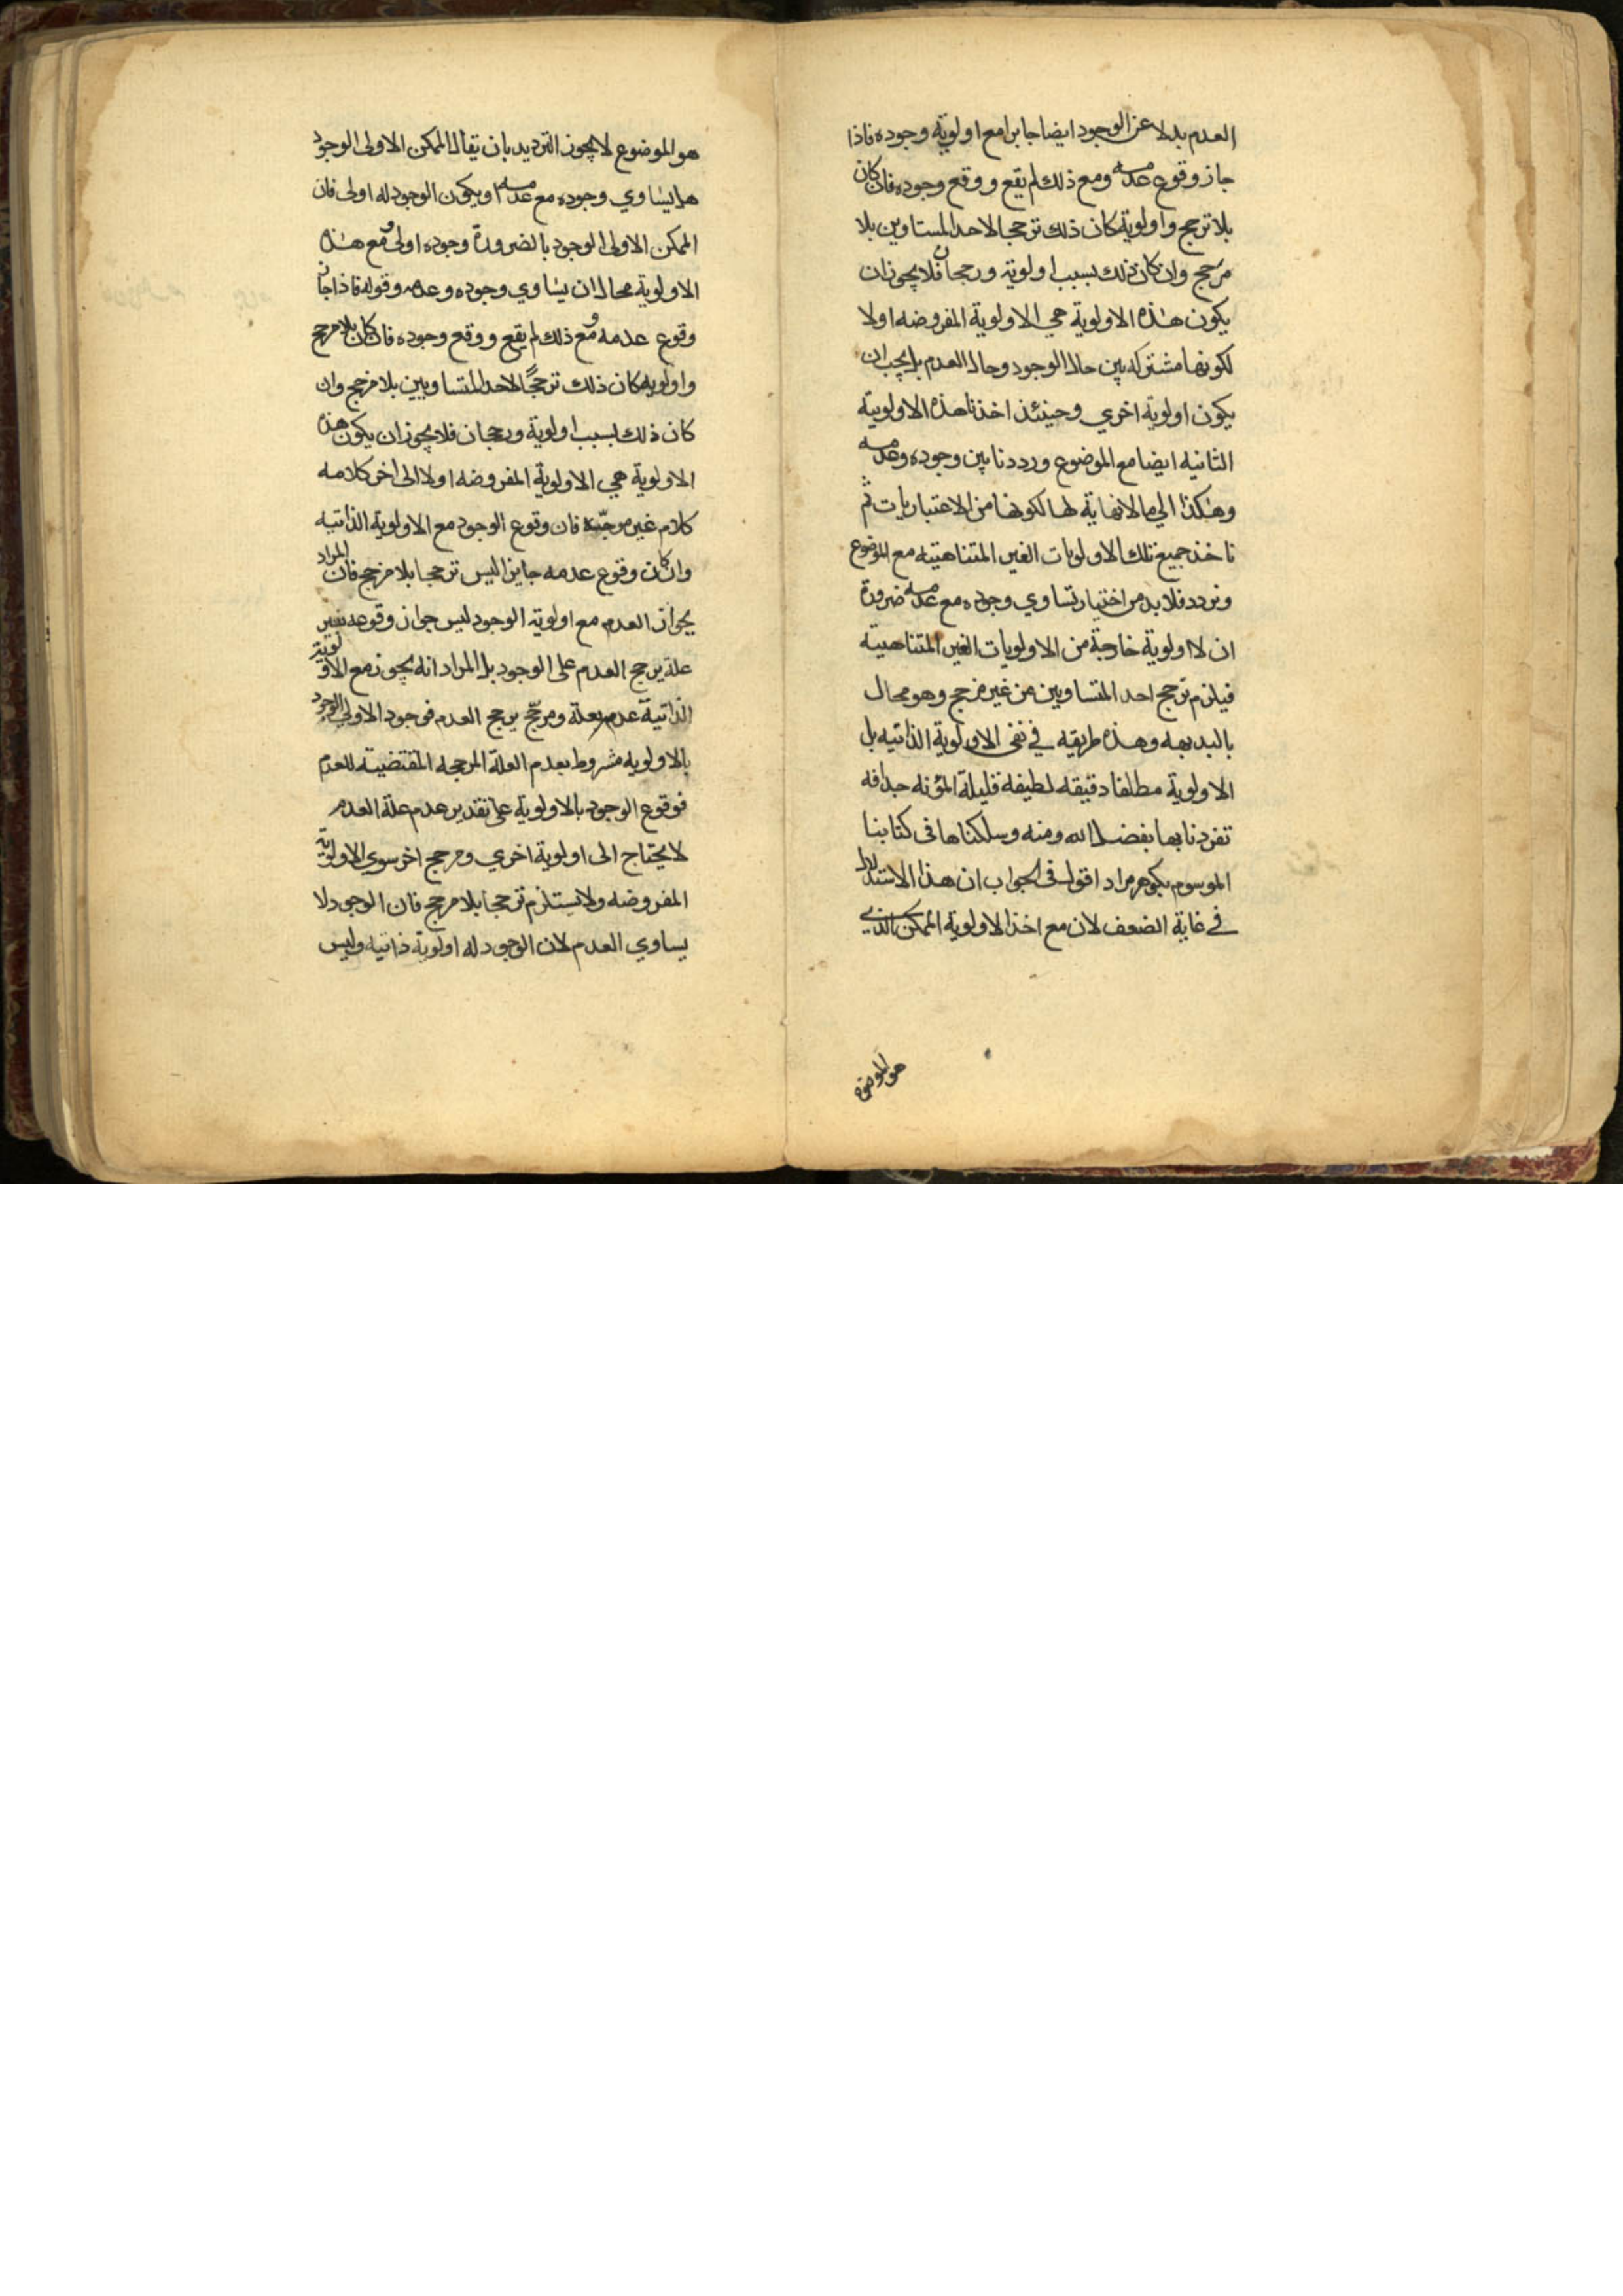 العدم بدلا عن الوجود ايضا جايزا مع اولوية وجوده فاذا
جاز وقوع عدمه ومع ذلك لم يقع ووقع وجوده فان كان
بلا ترجح واولوية كان ذلك ترجحا لاحد المستاوين بلا
مرجح وان كان ذلك بسبب اولوية ورجحان فلا يجوز ان
يكون هذه الاولوية هي الاولوية المفروضه اولا
لكونها مشتركه بين حال الوجود وحال العدم بل يجب ان
يكون اولوية اخري وحينئذ اخذنا هذه الاولوية
الثانيه ايضا مع الموضوع ورددنا بين وجوده وعدمه
وهكذا الي ما لا نهاية لها لكونها من الاعتباريات ثم
ناخذ جميع تلك الاولويات الغير المتناهيته مع الموضوع
ونردد فلا بد من اختيار تساوي وجوده مع عدمه ضرورة
ان لا اولوية خارجة من الاولويات الغير المتناهيته
فيلزم ترجح احد المتساويين من غير مرجح وهو محال
بالبديهه وهذه طريقه في نفى الاولوية الذاتيه بل
الاولوية مطلقا دقيقه لطيفه قليلة المؤنه جدافه
تفردنا بها بفضل الله ومنه وسلكناها فى كتابنا
الموسوم بكوهر مراد اقول فى الجواب ان هذا الاستدلال
في غاية الضعف لان مع اخذ الاولوية الممكن الذي
هو الموضوع
هو الموضوع لا يجوز الترديد بان يقال الممكن الاولى الوجود
هل يساوي وجوده مع عدمه او يكون الوجود له اولى فان
الممكن الاولى الوجود بالضرورة وجوده اولى ومع هذه
الاولوية محال ان يساوي وجوده وعدمه وقوله فاذا جاز
وقوع عدمه ومع ذلك لم يقع ووقع وجوده فان كان بلا مرجح
واولويه كان ذلك ترجحًا لاحد المتساويين بلا مرجح وان
كان ذلك بسبب اولوية ورجحان فلا يجوز ان يكون هذه
الاولوية هي الاولوية المفروضه اولا الى اخر كلامه
كلام غير موجّه فان وقوع الوجود مع الاولوية الذاتيه
وان كان وقوع عدمه جايزا ليس ترجحا بلا مرجح فان المراد
بجواز العدم مع اولوية الوجود ليس جواز وقوعه بغير
علة يرجح العدم على الوجود بل المراد انه يجوز مع الاولوية
الذاتية عدمه بعلة ومرجّح يرجح العدم فوجود الاولى الوجود
بالاولويه مشروط بعدم العلة المرجحه المقتضيته للعدم
فوقوع الوجود بالاولوية على تقدير عدم علة العدم
لا يحتاج الى اولوية اخري ومرجح اخر سوي الاولوية
المفروضه ولا يستلزم ترجحا بلا مرجح فان الوجود لا
يساوي العدم لان الوجود له اولوية ذاتيه وليس